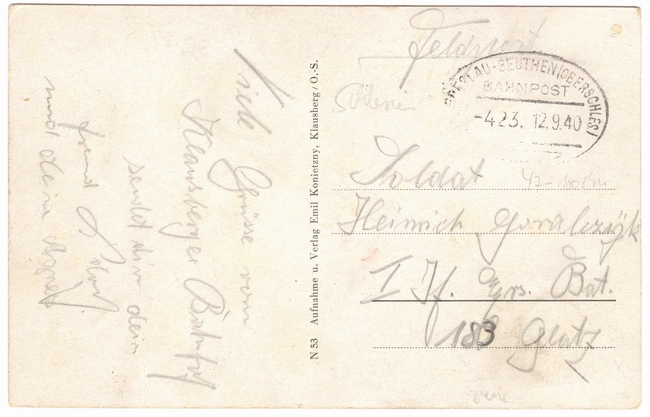 Viele Grüsse vom
Klausberger Bahnhof
sendet dir dein
freund
und dein
N 53 Aufnahme u. Verlag Emil Konietzny, Klausberg / O.-S.
Feldpost
BRESLAU-BEUTHEN (OBERSCHLES)
BAHNPOST
-423. 12.9.40
Soldat
Heinrich
I Jf. Ers. Bat.
183 Glatz